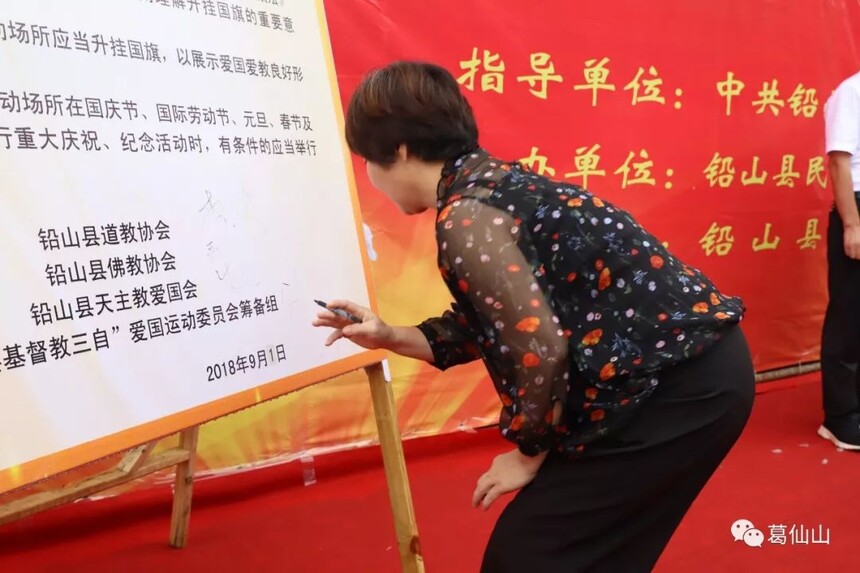 理解升挂国旗的重要意
动场所应当升挂国旗，以展示爱国爱教良好形
动场所在国庆节、国际劳动节、元旦、春节及
行重大庆祝、纪念活动时，有条件的应当举行
铅山县道教协会
铅山县佛教协会
铅山县天主教爱国会
基督教三自”爱国运动委员会筹备组
2018年9月1日
指导单位：中共铅
办单位：铅山县民
铅山县
葛仙山